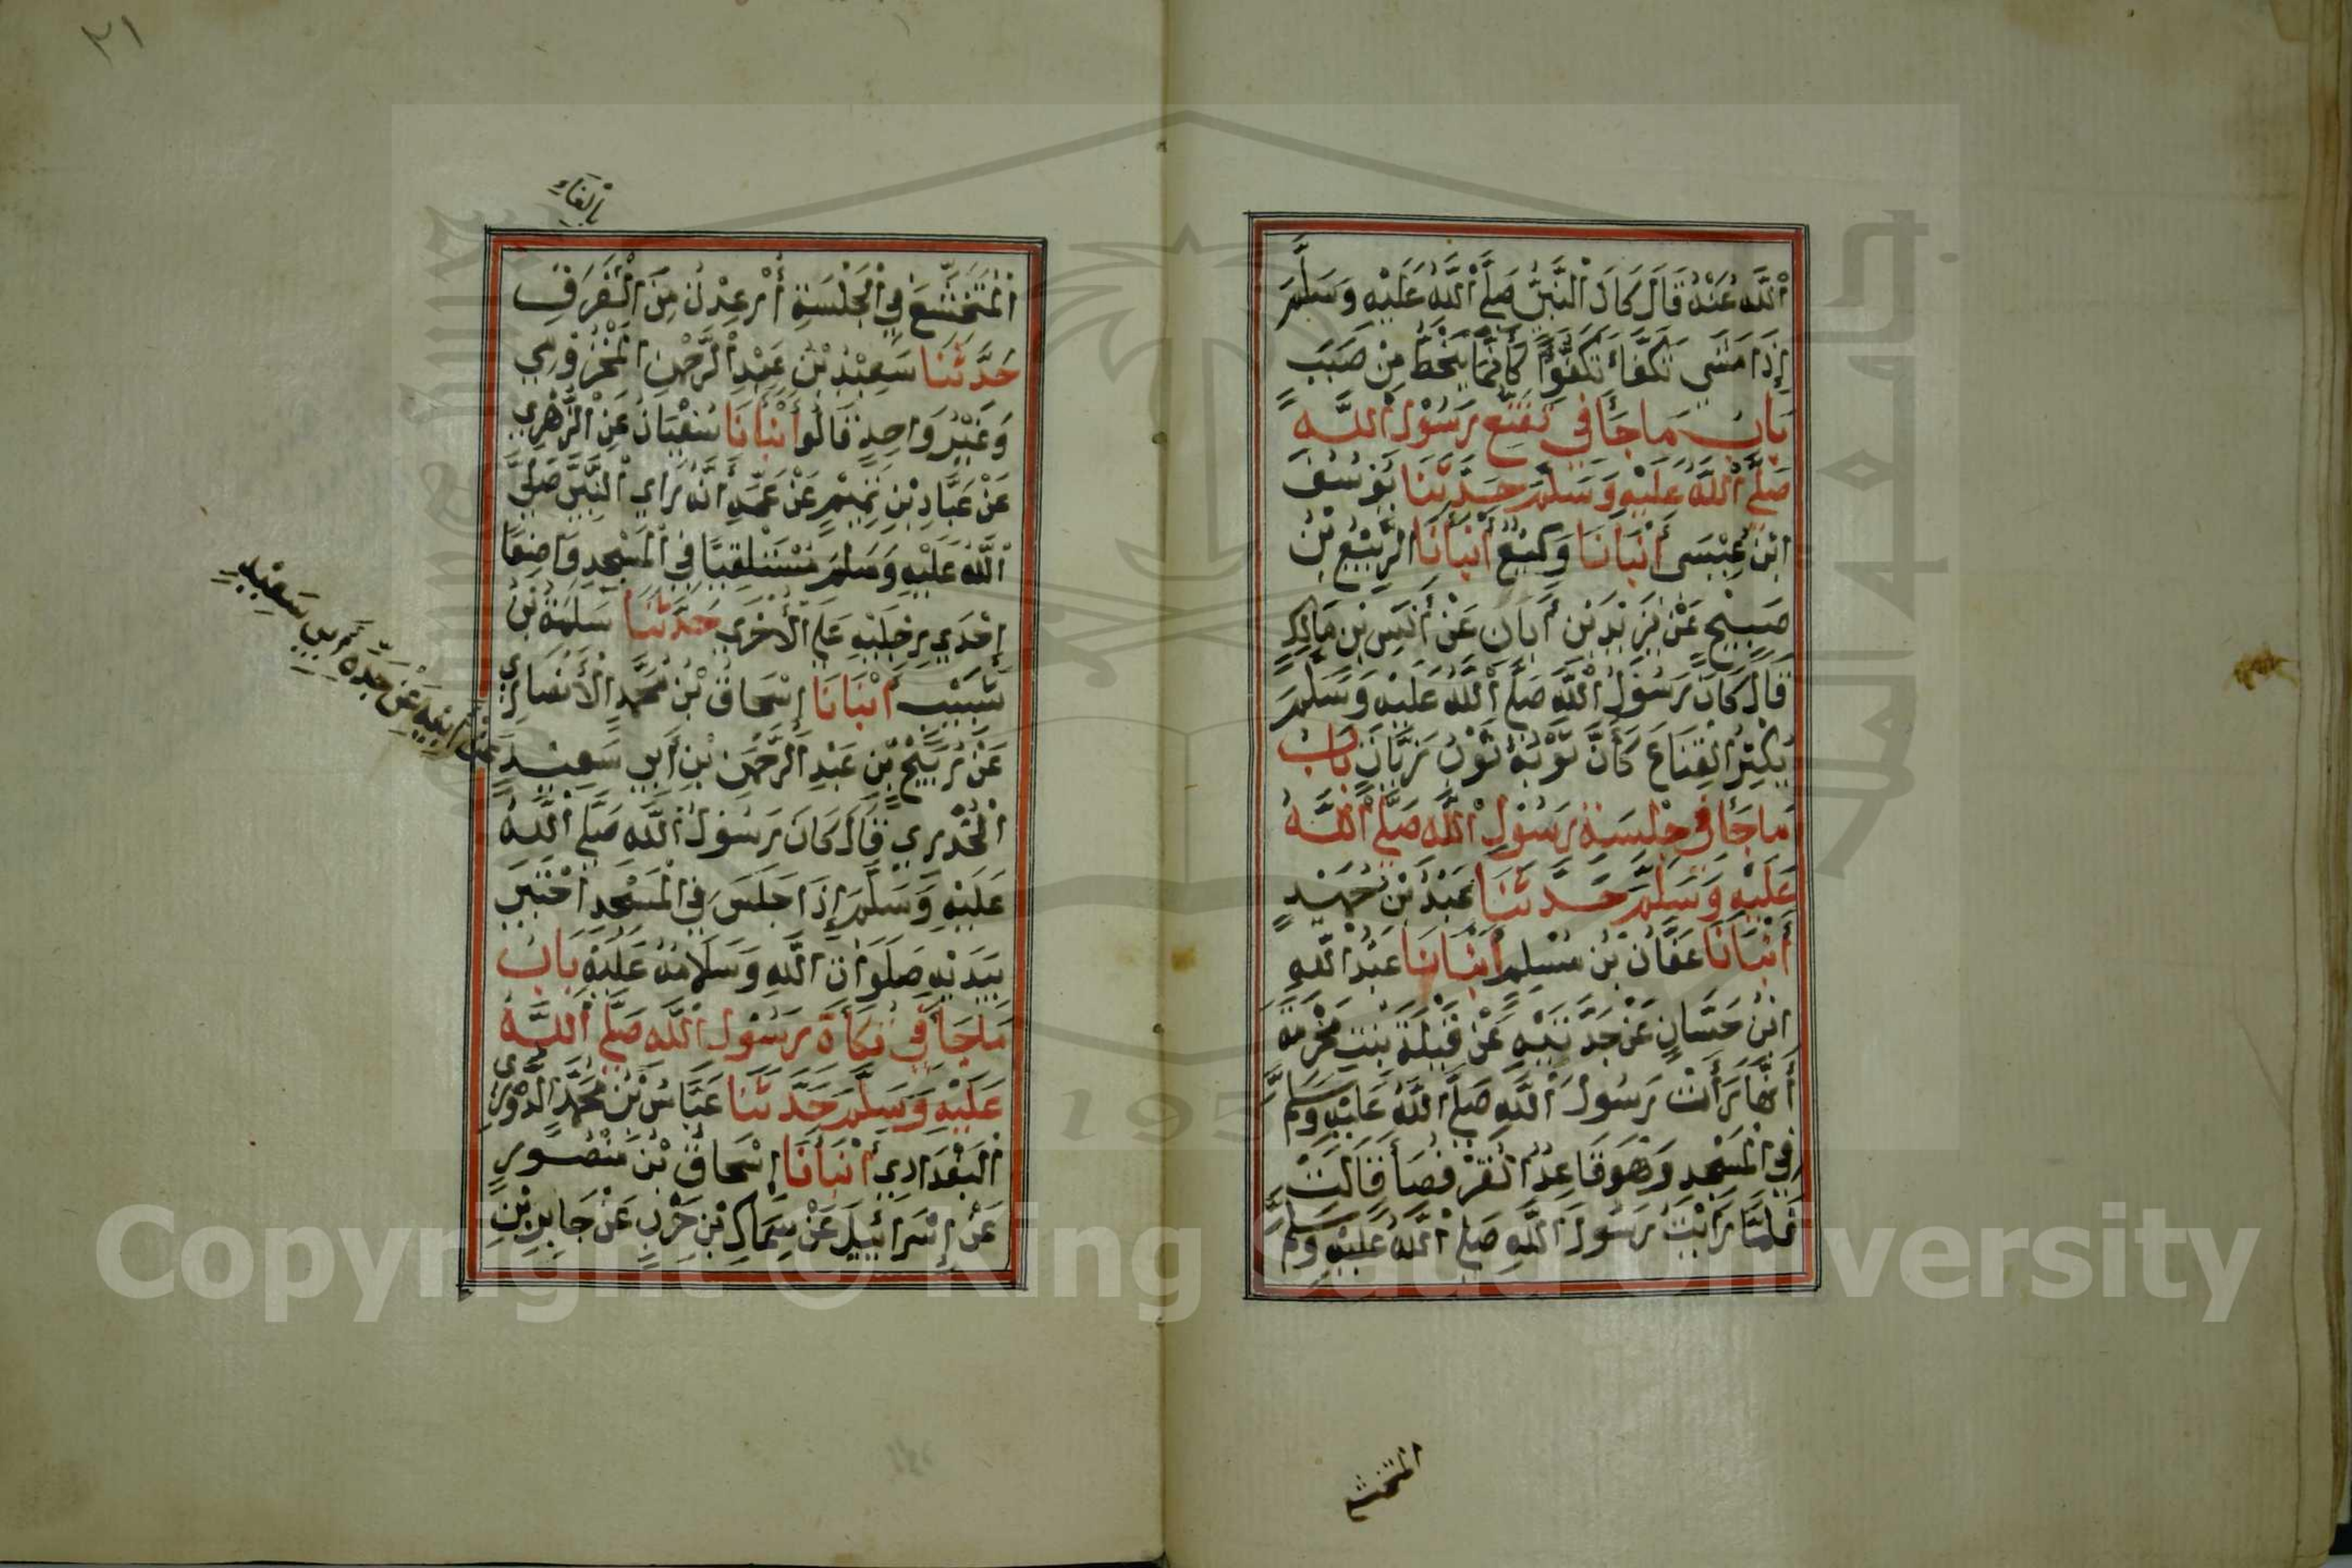 اللَّهُ عَنْهُ قَالَ كَانَ النَّبِيُّ صَلَّى اللَّهُ عَلَيْهِ وَسَلَّمَ
إِذَا مَشَى تَكَفَّأَ تَكَفُّؤًا كَأَنَّمَا يَنْحَطُّ مِنْ صَبَبٍ
بَابُ مَاجَأَ فِي تَقَنُّعِ رَسُولِ اللَّهِ
صَلَّى اللَّهُ عَلَيْهِ وَسَلَّمَ حَدَّثَنَا يُوسُفُ
ابْنُ عِيْسَى أَنْبَأَنَا وَكِيْعٌ أَنْبَأَنَا الرَّبِيْعُ بْنُ
صَبِيْحٍ عَنْ يَزِيْدَ بْنِ أَبَانَ عَنْ أَنَسِ بْنِ مَالِكٍ
قَالَ كَانَ رَسُوْلُ اللَّهِ صَلَّى اللَّهُ عَلَيْهِ وَسَلَّمَ
يُكْثِرُ الْقِنَاعَ كَأَنَّ ثَوْبَهُ ثَوْبُ زَيَّاتٍ بَابُ
مَاجَأَ فِي جِلْسَةِ رَسُوْلِ اللَّهِ صَلَّى اللَّهُ
عَلَيْهِ وَسَلَّمَ حَدَّثَنَا عَبْدُ بْنُ حُمَيْدٍ
أَنْبَأَنَا عَفَّانُ بْنُ مُسْلِمٍ أَنْبَأَنَا عَبْدُ اللَّهِ
ابْنُ حَسَّانٍ عَنْ جَدَّتَيْهِ عَنْ قَيْلَةَ بِنْتِ مَخْرَمَةَ
أَنَّهَا رَأَتْ رَسُوْلَ اللَّهِ صَلَّى اللَّهُ عَلَيْهِ وَسَلَّمَ
فِي الْمَسْجِدِ وَهُوَ قَاعِدٌ الْقُرْفُصَأَ قَالَتْ
فَلَمَّا رَأَيْتُ رَسُوْلَ اللَّهِ صَلَّى اللَّهُ عَلَيْهِ وَسَلَّمَ
المتخشع
٢١
الْمُتَخَشِّعَ فِي الْجِلْسَةِ أُرْعِدْتُ مِنَ الْفَرَقِ
بِالْفَاءِ
حَدَّثَنَا سَعِيْدُ بْنُ عَبْدِ الرَّحْمٰنِ الْمَخْزُوْمِي
وَغَيْرُ وَاحِدٍ قَالُوا أَنْبَأَنَا سُفْيَانُ عَنِ الزُّهْرِي
عَنْ عَبَّادِ بْنِ تَمِيْمٍ عَنْ عَمِّهِ أَنَّهُ رَأَى النَّبِيَّ صَلَّى
اللَّهُ عَلَيْهِ وَسَلَّمَ مُسْتَلْقِيًا فِي الْمَسْجِدِ وَاضِعًا
إِحْدَى رِجْلَيْهِ عَلَى الْأُخْرَى حَدَّثَنَا سَلَمَةُ بْنُ
شَبِيْبٍ أَنْبَأَنَا إِسْحَاقُ بْنُ مُحَمَّدٍ الْأَنْصَارِيُّ
عَنْ رُبَيْحِ بْنِ عَبْدِ الرَّحْمٰنِ بْنِ أَبِي سَعِيْدٍ
عَنْ أَبِيْهِ عَنْ جَدِّهِ أَبِي سَعِيْدٍ
الْخُدْرِيِّ قَالَ كَانَ رَسُوْلُ اللَّهِ صَلَّى اللَّهُ
عَلَيْهِ وَسَلَّمَ إِذَا جَلَسَ فِي الْمَسْجِدِ احْتَبَى
بِيَدَيْهِ صَلَوَاتُ اللَّهِ وَسَلَامُهُ عَلَيْهِ بَابُ
مَاجَأَ فِي تُكَأَةِ رَسُوْلِ اللَّهِ صَلَّى اللَّهُ
عَلَيْهِ وَسَلَّمَ حَدَّثَنَا عَبَّاسُ بْنُ مُحَمَّدٍ الدُّوْرِيُّ
الْبَغْدَادِيُّ أَنْبَأَنَا إِسْحَاقُ بْنُ مَنْصُوْرٍ
عَنْ إِسْرَائِيْلَ عَنْ سِمَاكِ بْنِ حَرْبٍ عَنْ جَابِرِ بْنِ
Copyright © King Saud University